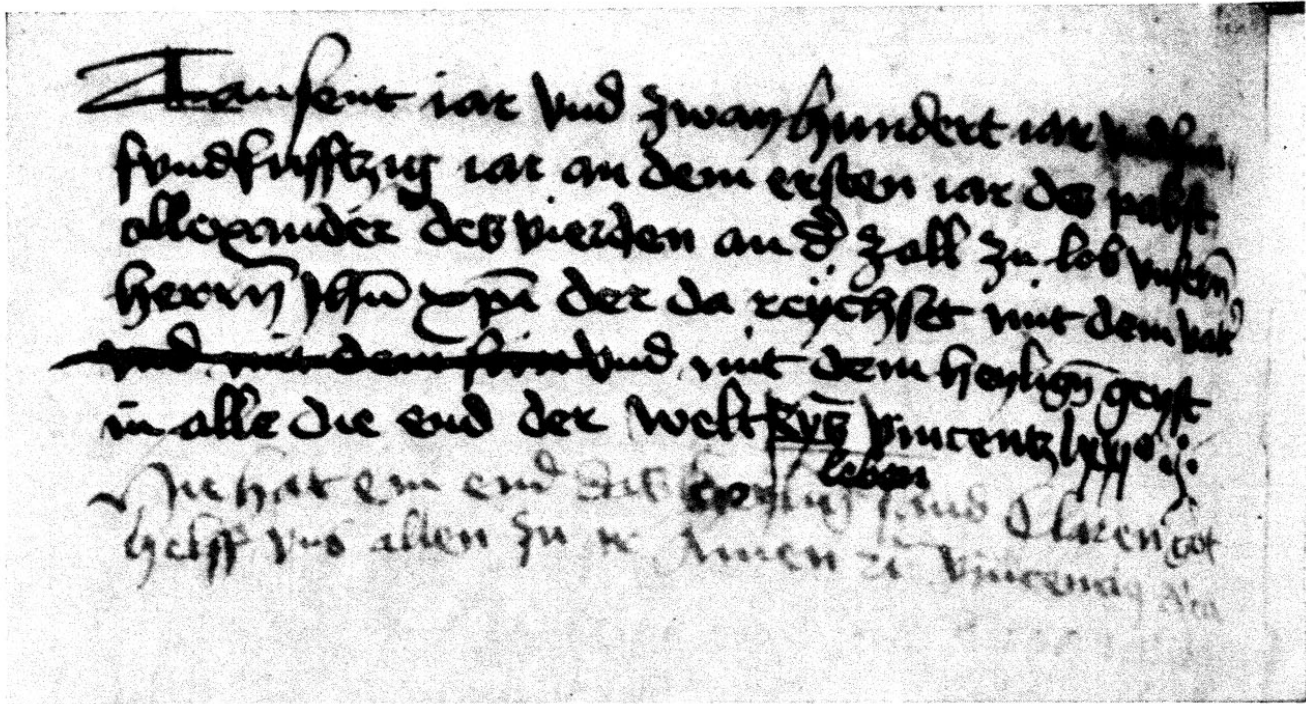 Tausent iar vnd zway hundert iar
fvndfufftzig iar an dem ersten iar des pabst
allexander des vierden an d̄ zall zu lob vnsern̄
herrn̄ Jhū xp̄i der da reÿchset mit dem vat'
vnd mit dem sun vnd mit dem heylign̄ geyst
in alle die end der welt Vincentz lxxii°
leben
hie hat ein end das sand Claren got
helff vns allen zu Amen